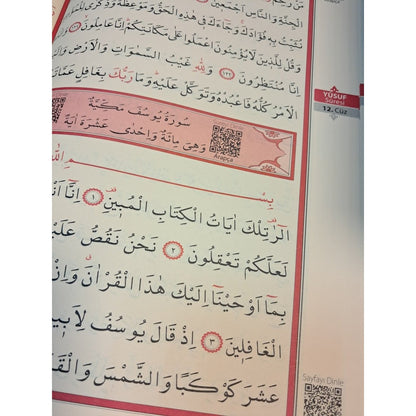 الْجِنَّةِ وَالنَّاسِ اَجْمَعِينَ
نُثَبِّتُ بِهِ فُؤَادَكَ وَجَاءَكَ فِي هٰذِهِ الْحَقُّ وَمَوْعِظَةٌ وَذِكْرٰى
وَقُلْ لِلَّذِينَ لَا يُؤْمِنُونَ اعْمَلُوا عَلٰى مَكَانَتِكُمْ اِنَّا عَامِلُونَ
اِنَّا مُنْتَظِرُونَ ١٢٢ وَلِلّٰهِ غَيْبُ السَّمٰوَاتِ وَالْاَرْضِ
الْاَمْرُ كُلُّهُ فَاعْبُدْهُ وَتَوَكَّلْ عَلَيْهِ وَمَا رَبُّكَ بِغَافِلٍ عَمَّا
YÛSUF
Sûresi
12. Cüz
سُورَةُ يُوسُفَ مَكِّيَّةٌ
وَهِيَ مِائَةٌ وَاِحْدٰى عَشْرَةَ اٰيَةً
Arapça
بِسْمِ اللّٰهِ
الٓرٰ تِلْكَ اٰيَاتُ الْكِتَابِ الْمُبِينِ ١ اِنَّٓا
لَعَلَّكُمْ تَعْقِلُونَ ٢ نَحْنُ نَقُصُّ
بِمَٓا اَوْحَيْنَٓا اِلَيْكَ هٰذَا الْقُرْاٰنَ وَاِنْ
الْغَافِلِينَ ٣ اِذْ قَالَ يُوسُفُ
عَشَرَ كَوْكَبًا وَالشَّمْسَ
Sayfayı Dinle